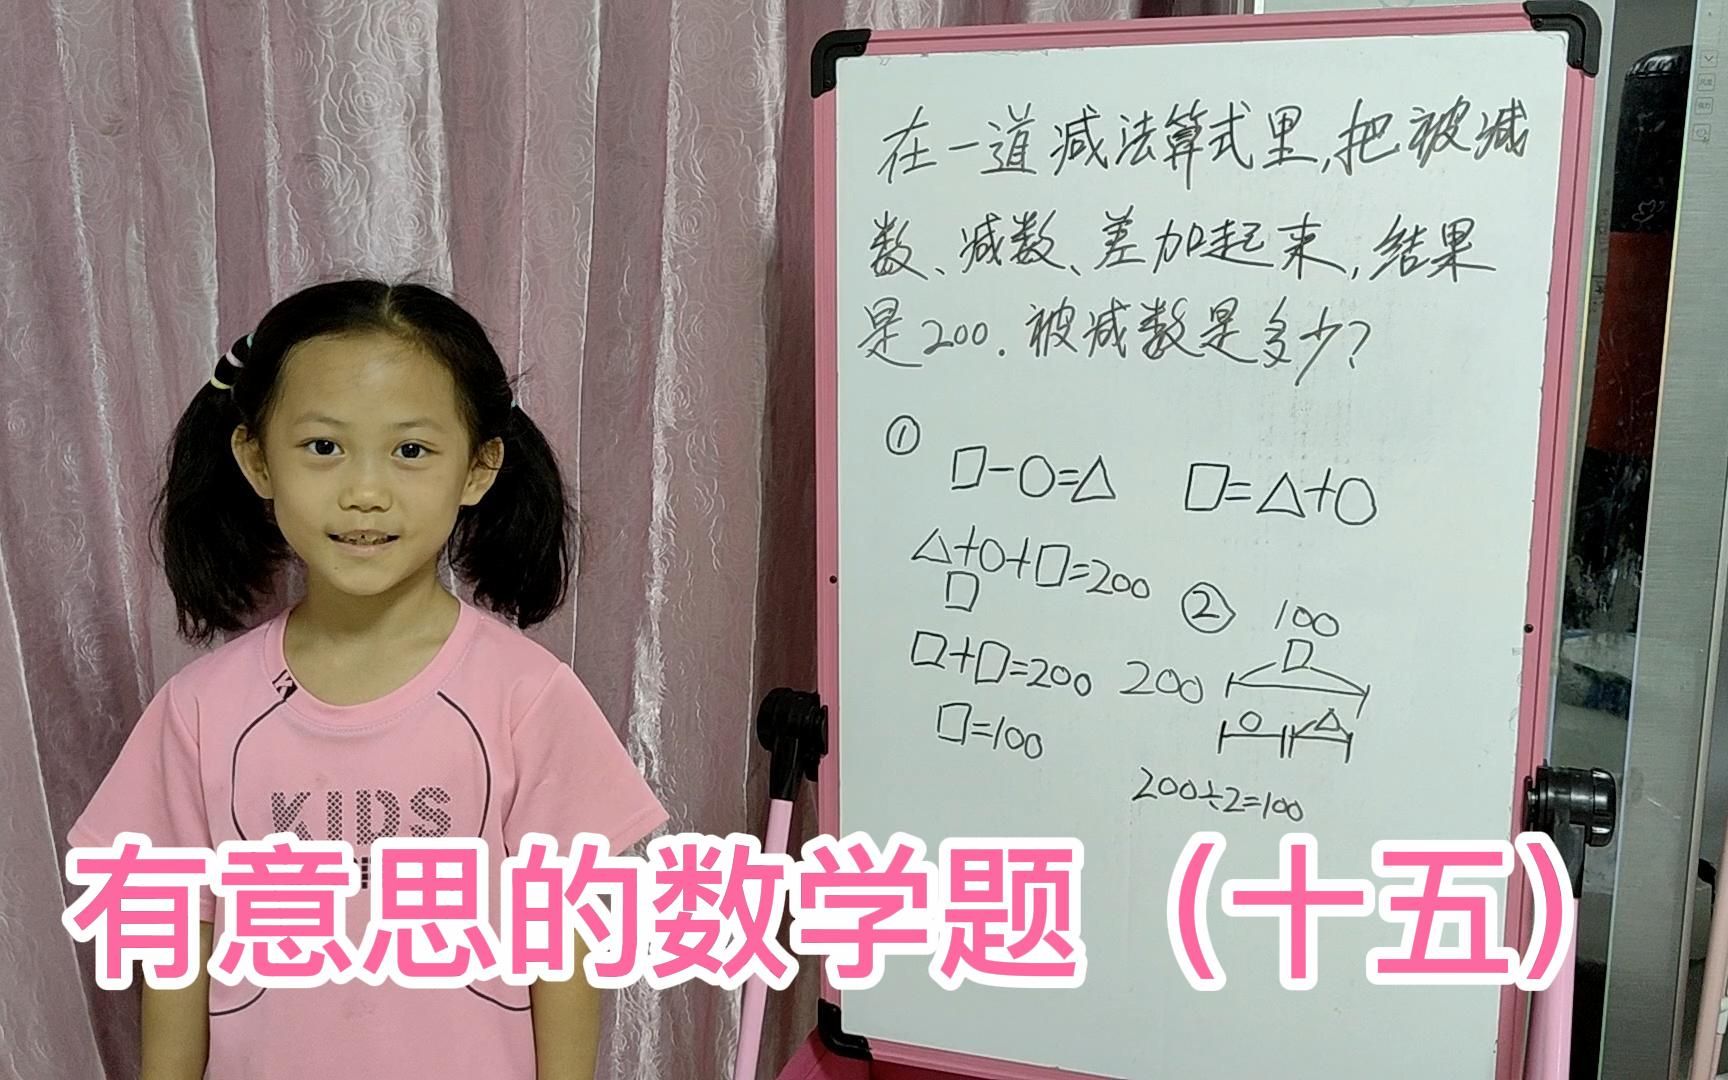 在一道减法算式里,把被减
数、减数、差加起来,结果
是200.被减数是多少?
①
□-○=△ □=△+○
△+○+□=200
□
②
100
□+□=200
200
□
○ △
□=100
200÷2=100
K
KIDS
有意思的数学题（十五）